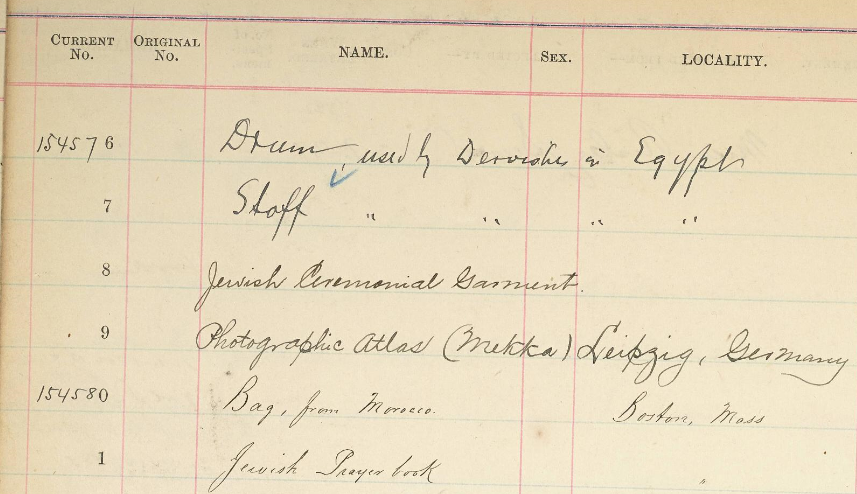 CURRENT No. ORIGINAL No. NAME. SEX. LOCALITY.
154576 Drum, used by Dervishes in Egypt
7 Staff " " " "
8 Jewish Ceremonial Garment.
9 Photographic Atlas (Mekka) Leipzig, Germany
154580 Bag, from Morocco. Boston, Mass
1 Jewish Prayer book "